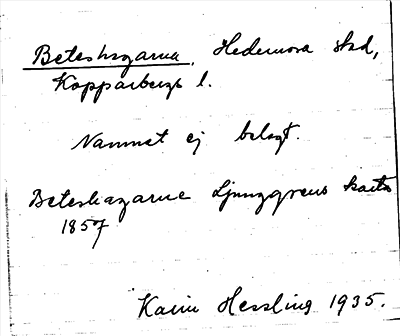 Beteshagarna, Hedemora stad,
Kopparbergs l.
Namnet ej belagt.
Beteshagarne Ljunggrens karta
1857
Karin Hessling 1935.